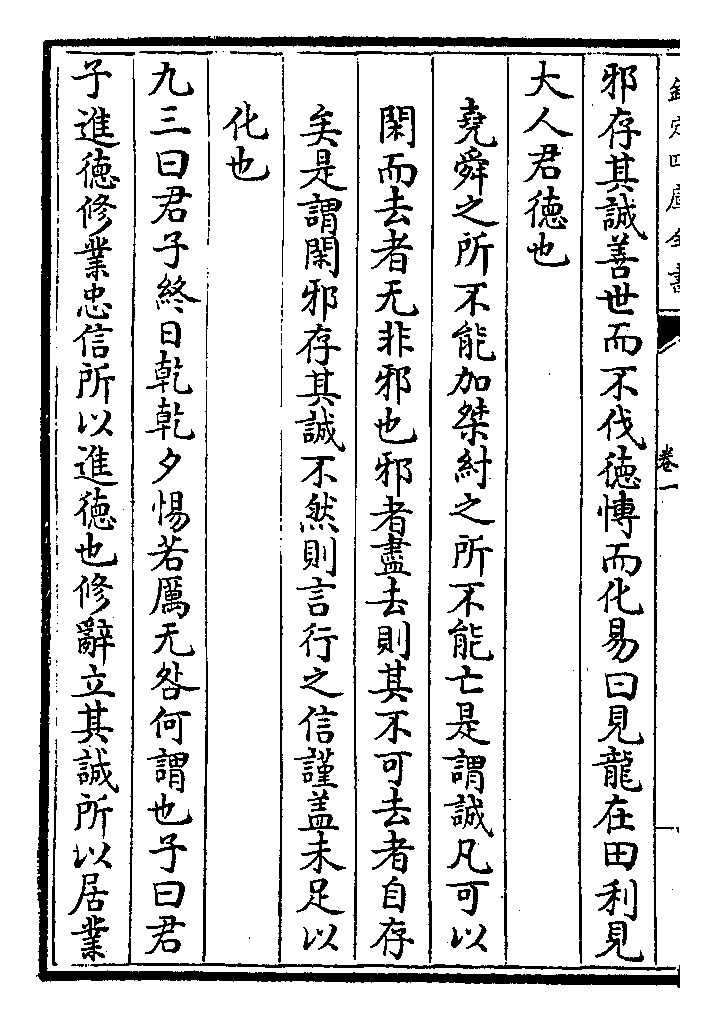 欽定四庫全書
卷一
邪存其誠善世而不伐徳慱而化易曰見龍在田利見
大人君徳也
堯舜之所不能加桀紂之所不能亡是謂誠凡可以
閑而去者无非邪也邪者盡去則其不可去者自存
矣是謂閑邪存其誠不然則言行之信謹盖未足以
化也
九三曰君子終日乾乾夕惕若厲无咎何謂也子曰君
子進徳修業忠信所以進徳也修辭立其誠所以居業